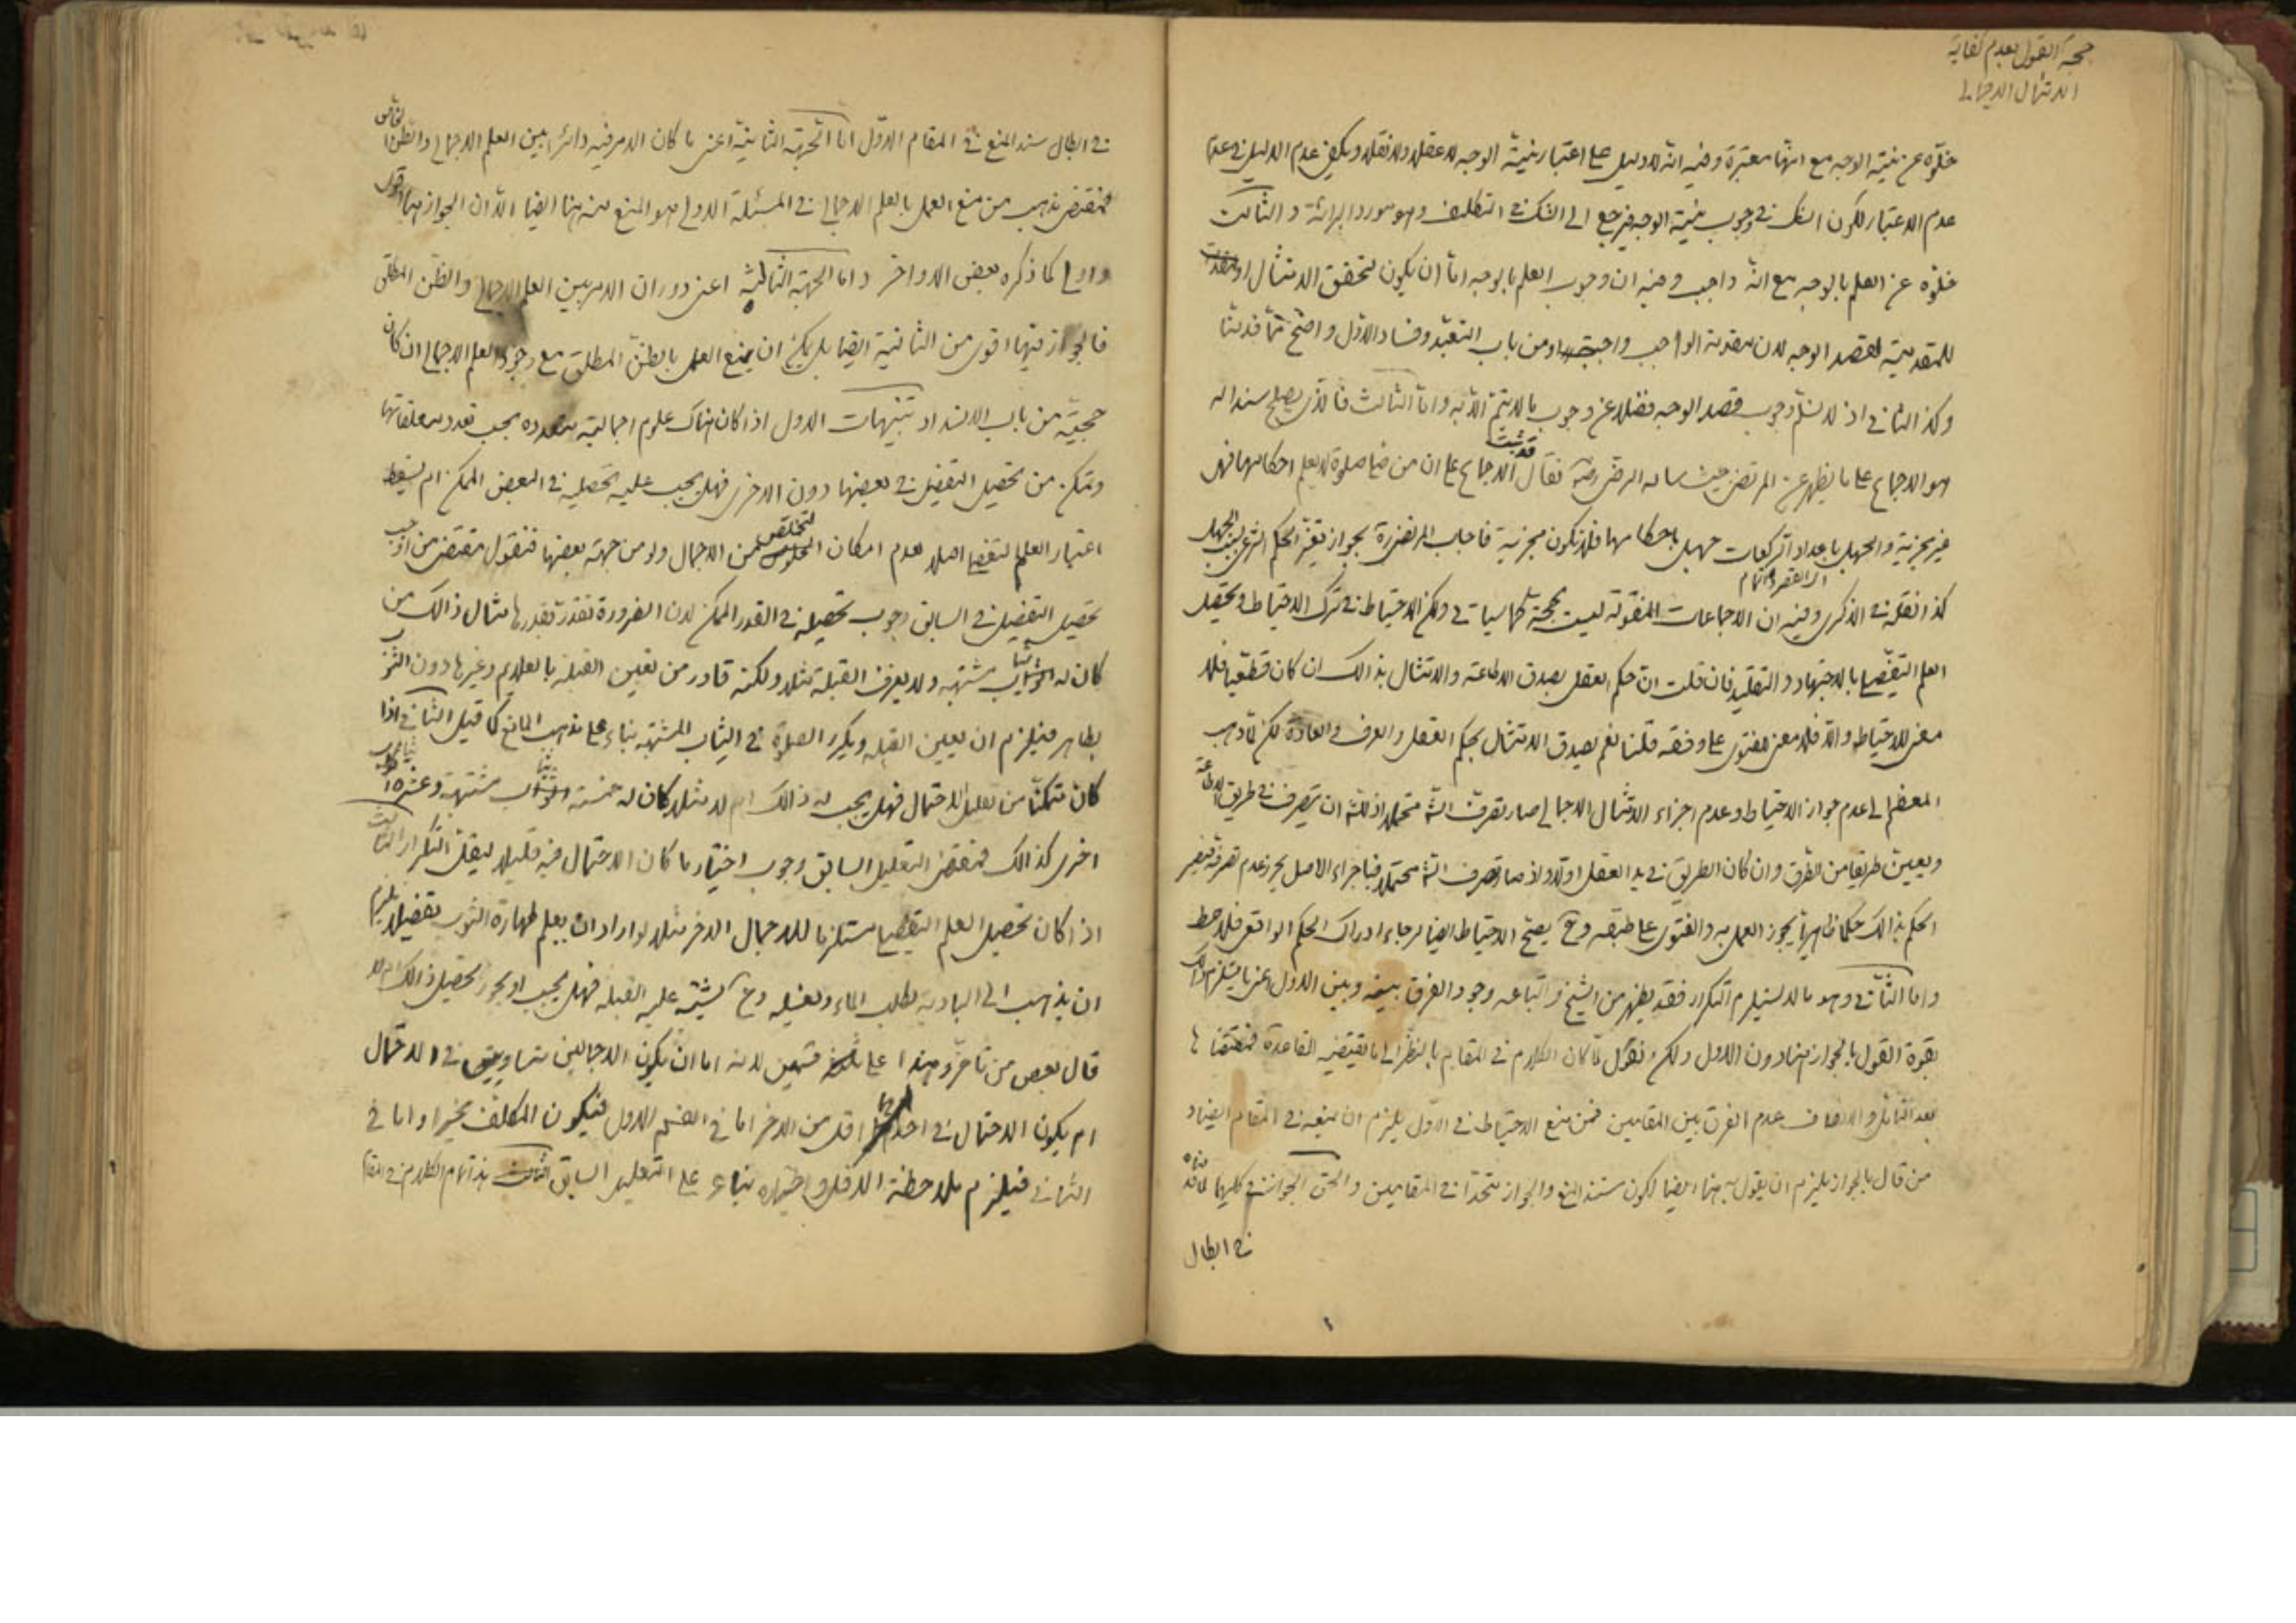 حجة القول بعدم كفاية
الامتثال الاجمالي
خلوّه عن نيّة الوجه مع انّها معتبرة وفيه انّه لا دليل على اعتبار نيّة الوجه لا عقلا ولا نقلا ويكفى عدم الدليل في عدم
عدم الاعتبار لكون الشك في وجوب نيّة الوجه فيرجع الى الشك في التكليف وهو مورد البرائة والثالث
خلوّه عن العلم بالوجه مع انّه واجب وفيه ان وجوب العلم بالوجه امّا ان يكون لتحقق الامتثال او
للمقدميّة لقصد الوجه لان مقدمة الواجب واجبة او من باب التعبّد وفساد الاوّل واضح ممّا قدمنا
وكذا الثاني اذ لا نسلّم وجوب قصد الوجه فضلا عن وجوب ما لا يتمّ الّا به وامّا الثالث فالّذى يصلح سندا له
هو الاجماع على ما يظهر عن المرتضى حيث ساله الرضى ره فقال قد ثبت الاجماع على ان من صلى صلوة لا يعلم احكامها فهى
غير مجزية والجهل باعداد الركعات جهل باحكامها فلا تكون مجزية فاجاب المرتضى ره بجواز تغيّر الحكم الشرعى بسبب الجهل
كذا نقله في الذكرى وفيه ان الاجماعات المنقولة ليست بحجة كما سيأتي ولكن الاحتياط في ترك الاحتياط وتحصيل
العلم التفصيلى بالاجتهاد والتقليد فان قلت انّ حكم العقل بصدق الاطاعة والامتثال بذالك ان كان قطعيا فلا
معنى للاحتياط والّا فلا معنى للفتوى على وفقه قلنا نعم يصدق الامتثال بحكم العقل والعرف والعادة لكن لما ذهب
المعظم الى عدم جواز الاحتياط وعدم اجزاء الامتثال الاجمالي صار تصرف الشّ محتملا اذ للشّ ان يتصرف في طريق الاطاعة
ويعيّن طريقا من الطرق وان كان الطريق في يد العقل اولا واذ صار تصرف الشّ محتملا فباجراء الاصل يحرز عدم تصرفه فيصير
الحكم بذالك حكما ظاهريا يجوز العمل به والفتوى على طبقه وح يصحّ الاحتياط ايضا لرجاء ادراك الحكم الواقعى فلاحظ
وامّا الثّاني وهو ما لا يستلزم التكرار فقد يظهر من الشيخ واتباعه وجود الفرق بينه وبين الاول اعنى ما يستلزم ذالك
بقوة القول بالجواز هنا دون الاول ولكن نقول لمّا كان الكلام في المقام بالنظر الى ما يقتضيه القاعدة فمقتضاها
بعد التأمّل والانصاف عدم الفرق بين المقامين فمن منع الاحتياط في الاول يلزم ان يمنعه في المقام ايضا و
من قال بالجواز يلزم ان يقول به هنا ايضا لكون مستند المنع والجواز متحدا في المقامين والحق الجواز في كليهما لما قدمناه
في ابطال
في ابطال سند المنع في المقام الاوّل امّا الجهة الثانية اعنى ما كان الامر فيه دائرا بين العلم الاجمالي والظن الخاص
فمقتضى مذهب من منع العمل بالعلم الاجمالي في المسئلة الاولى هو المنع منه هنا ايضا الّا ان الجواز هنا اقوى
واولى كما ذكره بعض الاواخر وامّا الجهة الثالثة اعنى دوران الامر بين العلم الاجمالي والظن المطلق
فالجواز فيها اقوى من الثانية ايضا بل يمكن ان يمنع العمل بالظنّ المطلق مع وجود العلم الاجمالي ان كان
حجيّته من باب الانسداد تنبيهات الاول اذا كان هناك علوم اجمالية متعدده بحسب تعدد متعلقاتها
وتمكن من تحصيل التفصيل في بعضها دون الاخرى فهل يجب عليه تحصيله في البعض الممكن ام يسقط
اعتبار العلم التفصيلى اصلا لعدم امكان التخلص من الاجمال ولو من جهة بعضها فنقول مقتضى من اوجب
تحصيل التفصيل في السابق وجوب تحصيله في القدر الممكن لان الضرورة تقدّر بقدرها مثال ذالك من
كان له ثياب مشتبه ولا يعرف القبلة مثلا ولكنه قادر من تعيين القبلة بالعلايم وغيرها دون الثوب
بطاهر فيلزم ان يعيّن القبله ويكرر الصلوة في الثياب المشتبه بناء على مذهب المانع كما قيل الثاني اذا
كان متمكنا من تقليل الاحتمال فهل يجب له ذالك ام لا مثلا كان له خمسة اثواب مشتبهة وعشرة
اخرى كذالك فمقتضى التعليل السابق وجوب اختيار ما كان الاحتمال فيه قليلا ليقلّ التكرار الثالث
اذا كان تحصيل العلم التفصيلى مستلزما للاجمال الاخر مثلا لو اراد ان يعلم طهارة الثوب تفصيلا يلزم
ان يذهب الى البادية لطلب الماء وتغسيله وح يشتبه عليه القبله فهل يجب او يجوز تحصيل ذالك ام لا
قال بعض من تأخر وهذا على قسمين لانه اما ان يكون الاجمالين متساويين في الاحتمال
ام يكون الاحتمال في احدهما اقل من الاخر اما في القسم الاول فيكون المكلف مخيرا واما في
الثاني فيلزم ملاحظة الاقل واختياره بناء على التعليل السابق هذا تمام الكلام في المقام